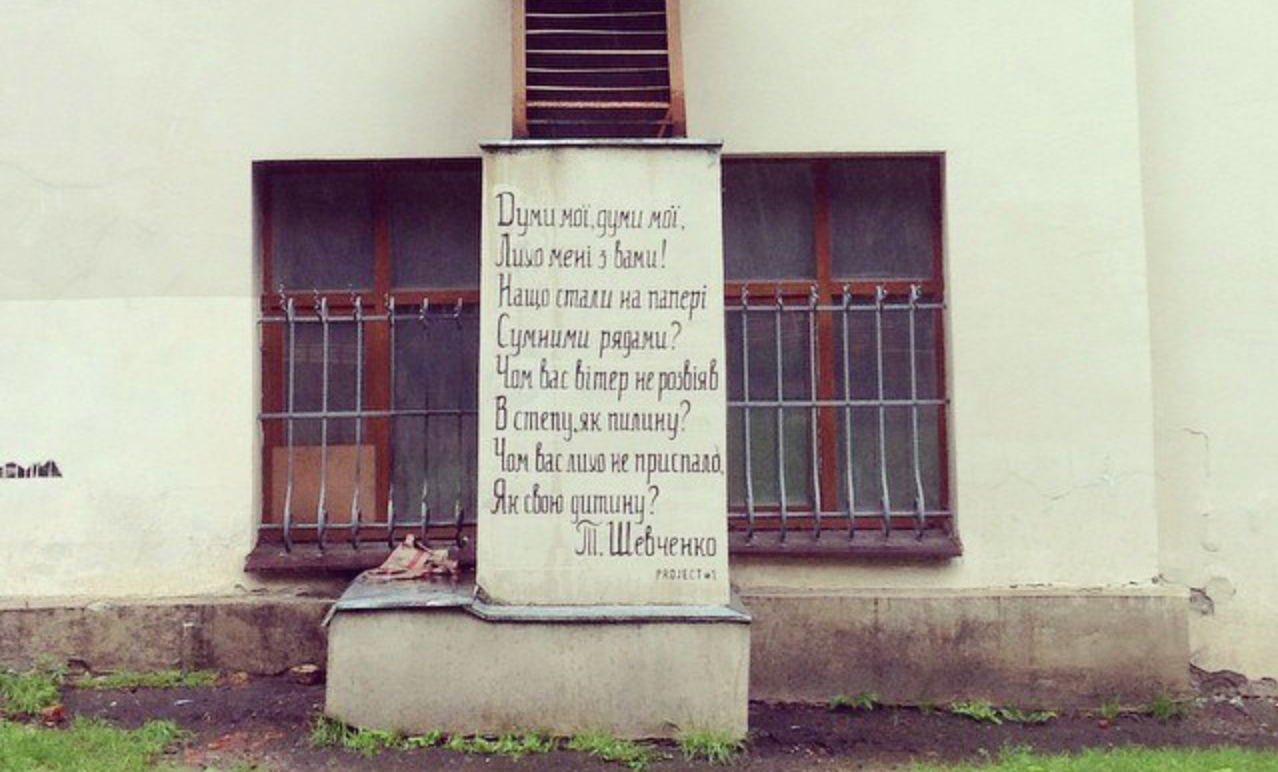 Думи мої, думи мої,
Лихо мені з вами!
Нащо стали на папері
Сумними рядами?
Чом вас вітер не розвіяв
В степу, як пилину?
Чом вас лихо не приспало,
Як свою дитину?
Т. Шевченко
PROJECT №1